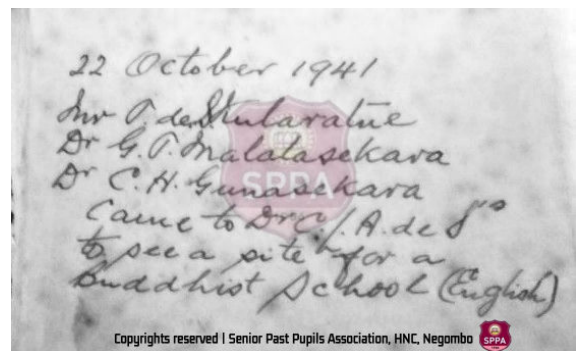 22 October 1941
Mr P. de S Kularatne
Dr G. P. Malalasekara
Dr C. H. Gunasekara
Came to Dr C. J. A. de S
to see a site for a
Buddhist School (English)
SPPA
Copyrights reserved | Senior Past Pupils Association, HNC, Negombo
SPPA